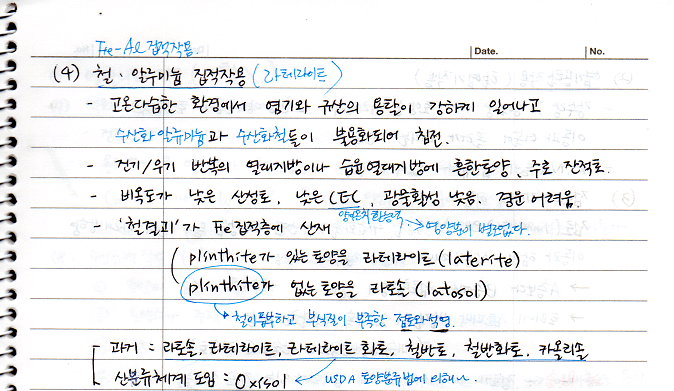 Fe-Al 집적작용
Date. No.
(4) 철·알루미늄 집적작용 (라테라이트)
- 고온다습한 환경에서 염기와 규산의 용탈이 강하게 일어나고
수산화알루미늄과 수산화철들이 불용화되어 침전.
- 건기/우기 반복의 열대지방이나 습윤열대지방에 흔한토양, 주로 잔적토.
- 비옥도가 낮은 산성토, 낮은 CEC, 광물활성 낮음. 경운 어려움.
양이온치환능력 → 영양분이 별로없다.
- '철결괴'가 Fe집적층에 산재
plinthite가 있는토양을 라테라이트(laterite)
plinthite가 없는토양을 라토솔(latosol)
↳ 철이풍부하고 부식질이 부족한 점토와석영.
과거 : 라토솔, 라테라이트, 라테라이트 화토, 철반토, 철반화토, 카올리솔
신분류체계 도입 = Oxisol ← USDA 토양분류법에 의해~